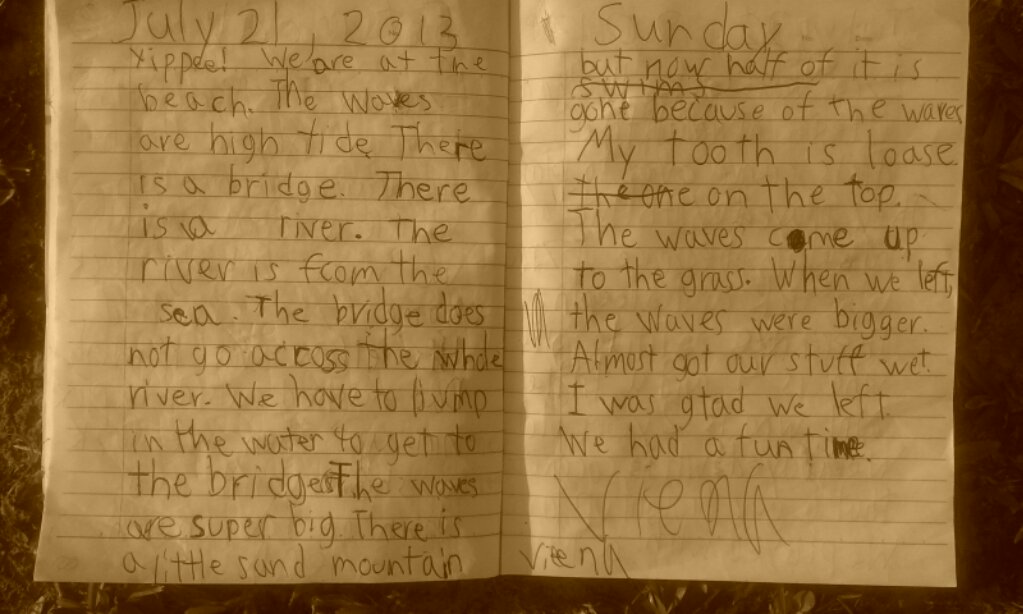 July 21, 2013
Yippee! We are at the
beach. The waves
are high tide There
is a bridge. There
is a river. The
river is fcom the
sea. The bridge does
not go across the whole
river. We have to bump
in the water to get to
the bridge The waves
are super big. There is
a little sand mountain
Sunday
but now half of it is
swims
gone because of the waves
My tooth is loase
the one on the top.
The waves come up
to the grass. When we left,
the waves were bigger.
Almost got our stuff wet.
I was glad we left.
We had a fun time.
Viena
Viena